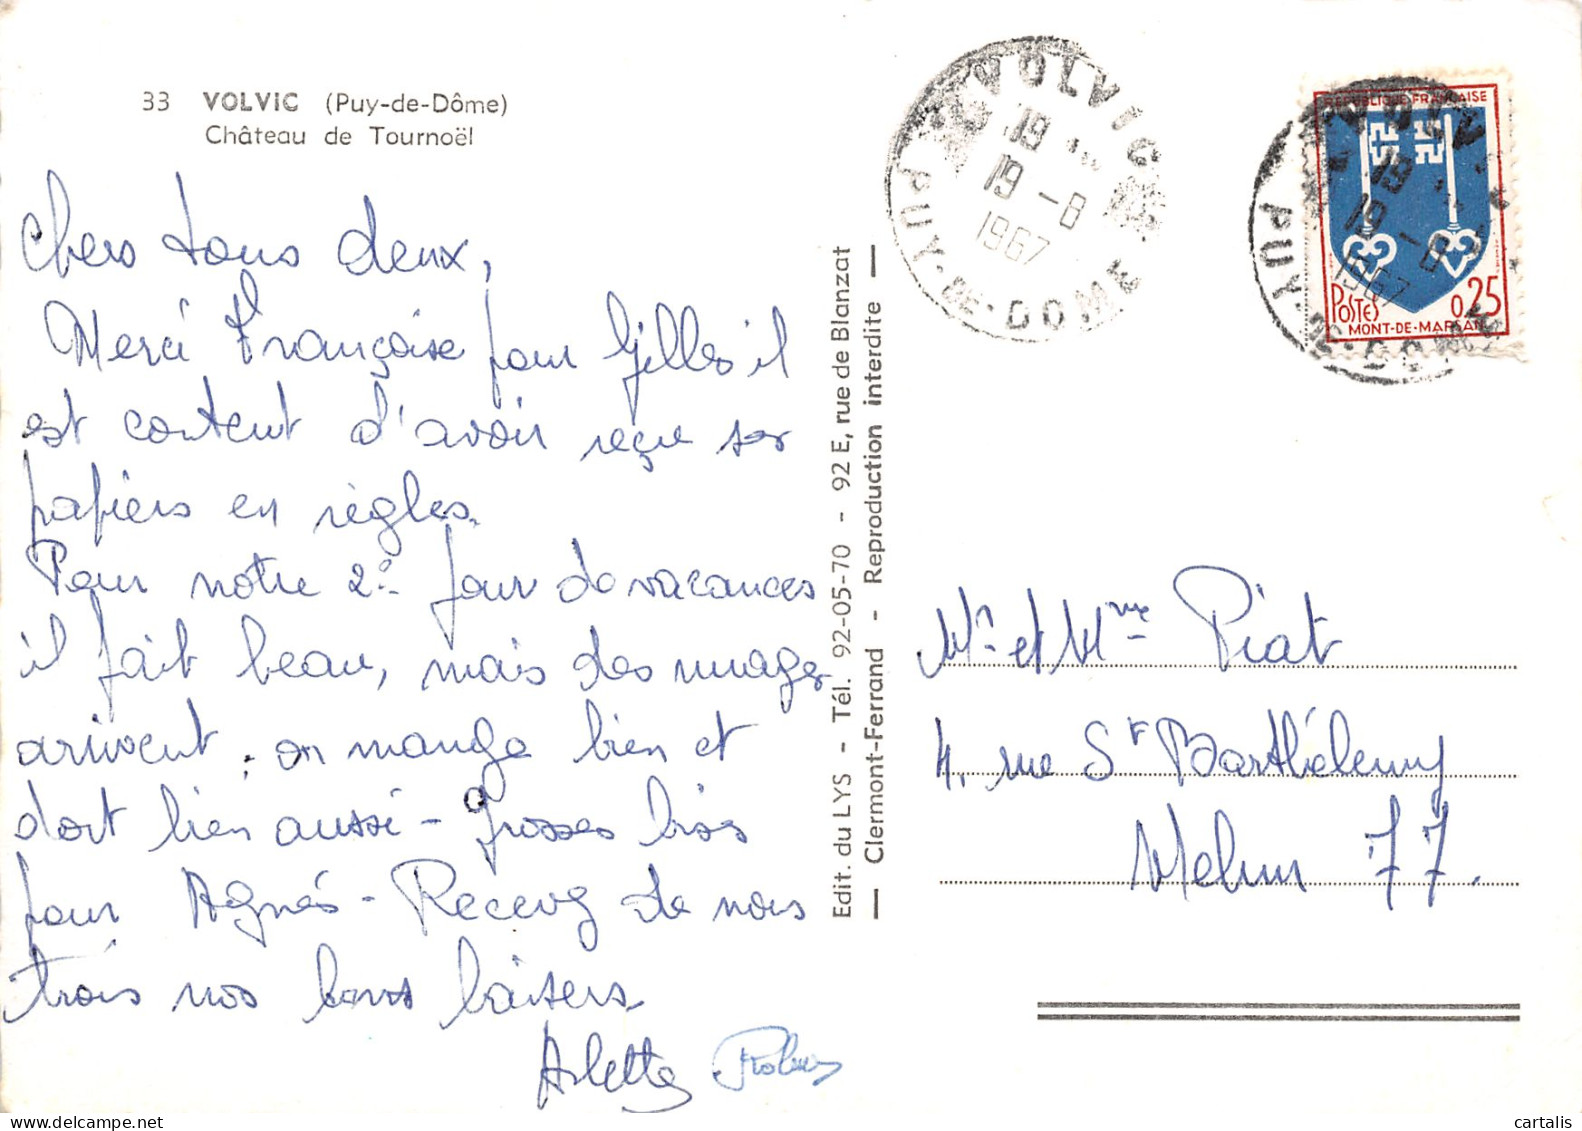 33 VOLVIC (Puy-de-Dôme)
Château de Tournoël
Chers tous deux,
Merci Françoise pour Gilles il
est content d'avoir reçu ses
papiers en règles.
Pour notre 2e jour de vacances
il fait beau, mais des nuages
arrivent, on mange bien et
dort bien aussi - Grosses bises
pour Agnés - Recevez de nous
trois nos bons baisers.
Arlette
Edit. du LYS - Tél. 92-05-70 - 92 E, rue de Blanzat
Clermont-Ferrand - Reproduction interdite
VOLVIC
19
19 -8
1967
PUY-DE-DOME
REPUBLIQUE FRANÇAISE
POSTES 0,25
MONT-DE-MARSAN
VOLVIC
19
19 -8
1967
PUY-DE-DOME
Mr et Mme Piat
4, rue St Barthélemy
Melun 77.
cartalis